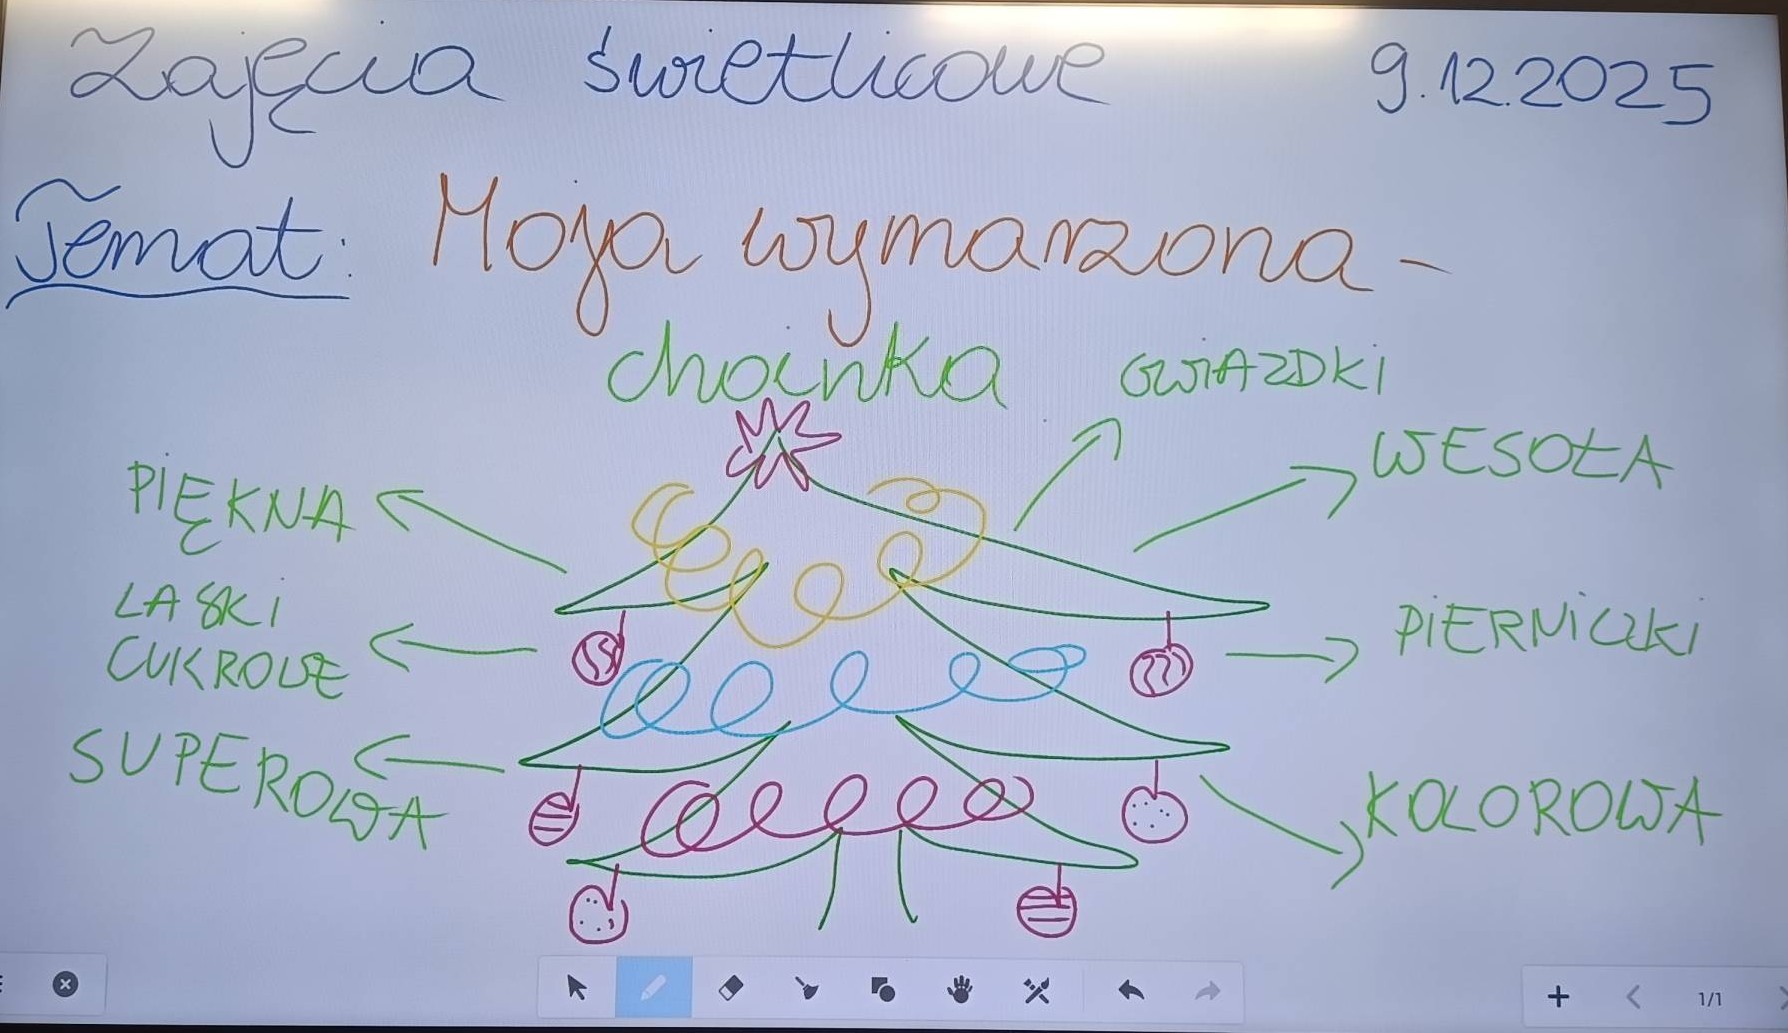 Zajęcia świetlicowe 9.12.2025
Temat: Moja wymarzona -
choinka
GWIAZDKI
WESOŁA
PIĘKNA
LASKI
CUKROWE
PIERNICZKI
SUPEROWA
KOLOROWA
1/1